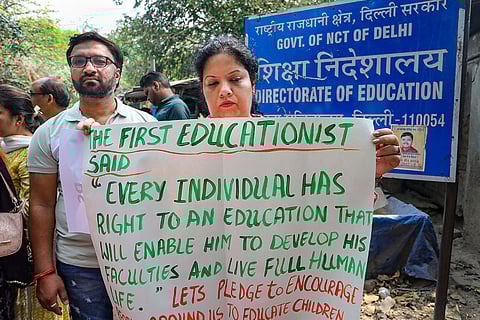 राष्ट्रीय राजधानी क्षेत्र, दिल्ली सरकार
GOVT. OF NCT OF DELHI
शिक्षा निदेशालय
DIRECTORATE OF EDUCATION
दिल्ली-110054
THE FIRST EDUCATIONIST
SAID
"EVERY INDIVIDUAL HAS
RIGHT TO AN EDUCATION THAT
WILL ENABLE HIM TO DEVELOP HIS
FACULTIES AND LIVE FULL HUMAN
LIFE." LETS PLEDGE to ENCOURAGE
AROUND US TO EDUCATE CHILDREN